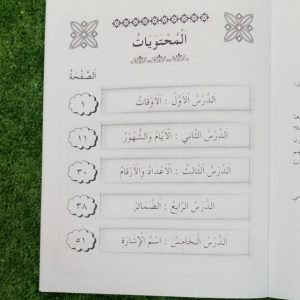 اَلْمُحْتَوِيَاتُ
اَلصَّفْحَةُ
اَلدَّرْسُ الْأَوَّلُ : اَلْأَوْقَاتُ ١
اَلدَّرْسُ الثَّانِي : اَلْأَيَّامُ وَالشُّهُوْرُ ١١
اَلدَّرْسُ الثَّالِثُ : اَلْأَعْدَادُ وَالْأَرْقَامُ ٣٠
اَلدَّرْسُ الرَّابِعُ : اَلضَّمَائِرُ ٣٨
اَلدَّرْسُ الْخَامِسُ : اِسْمُ الْإِشَارَةِ ٥١